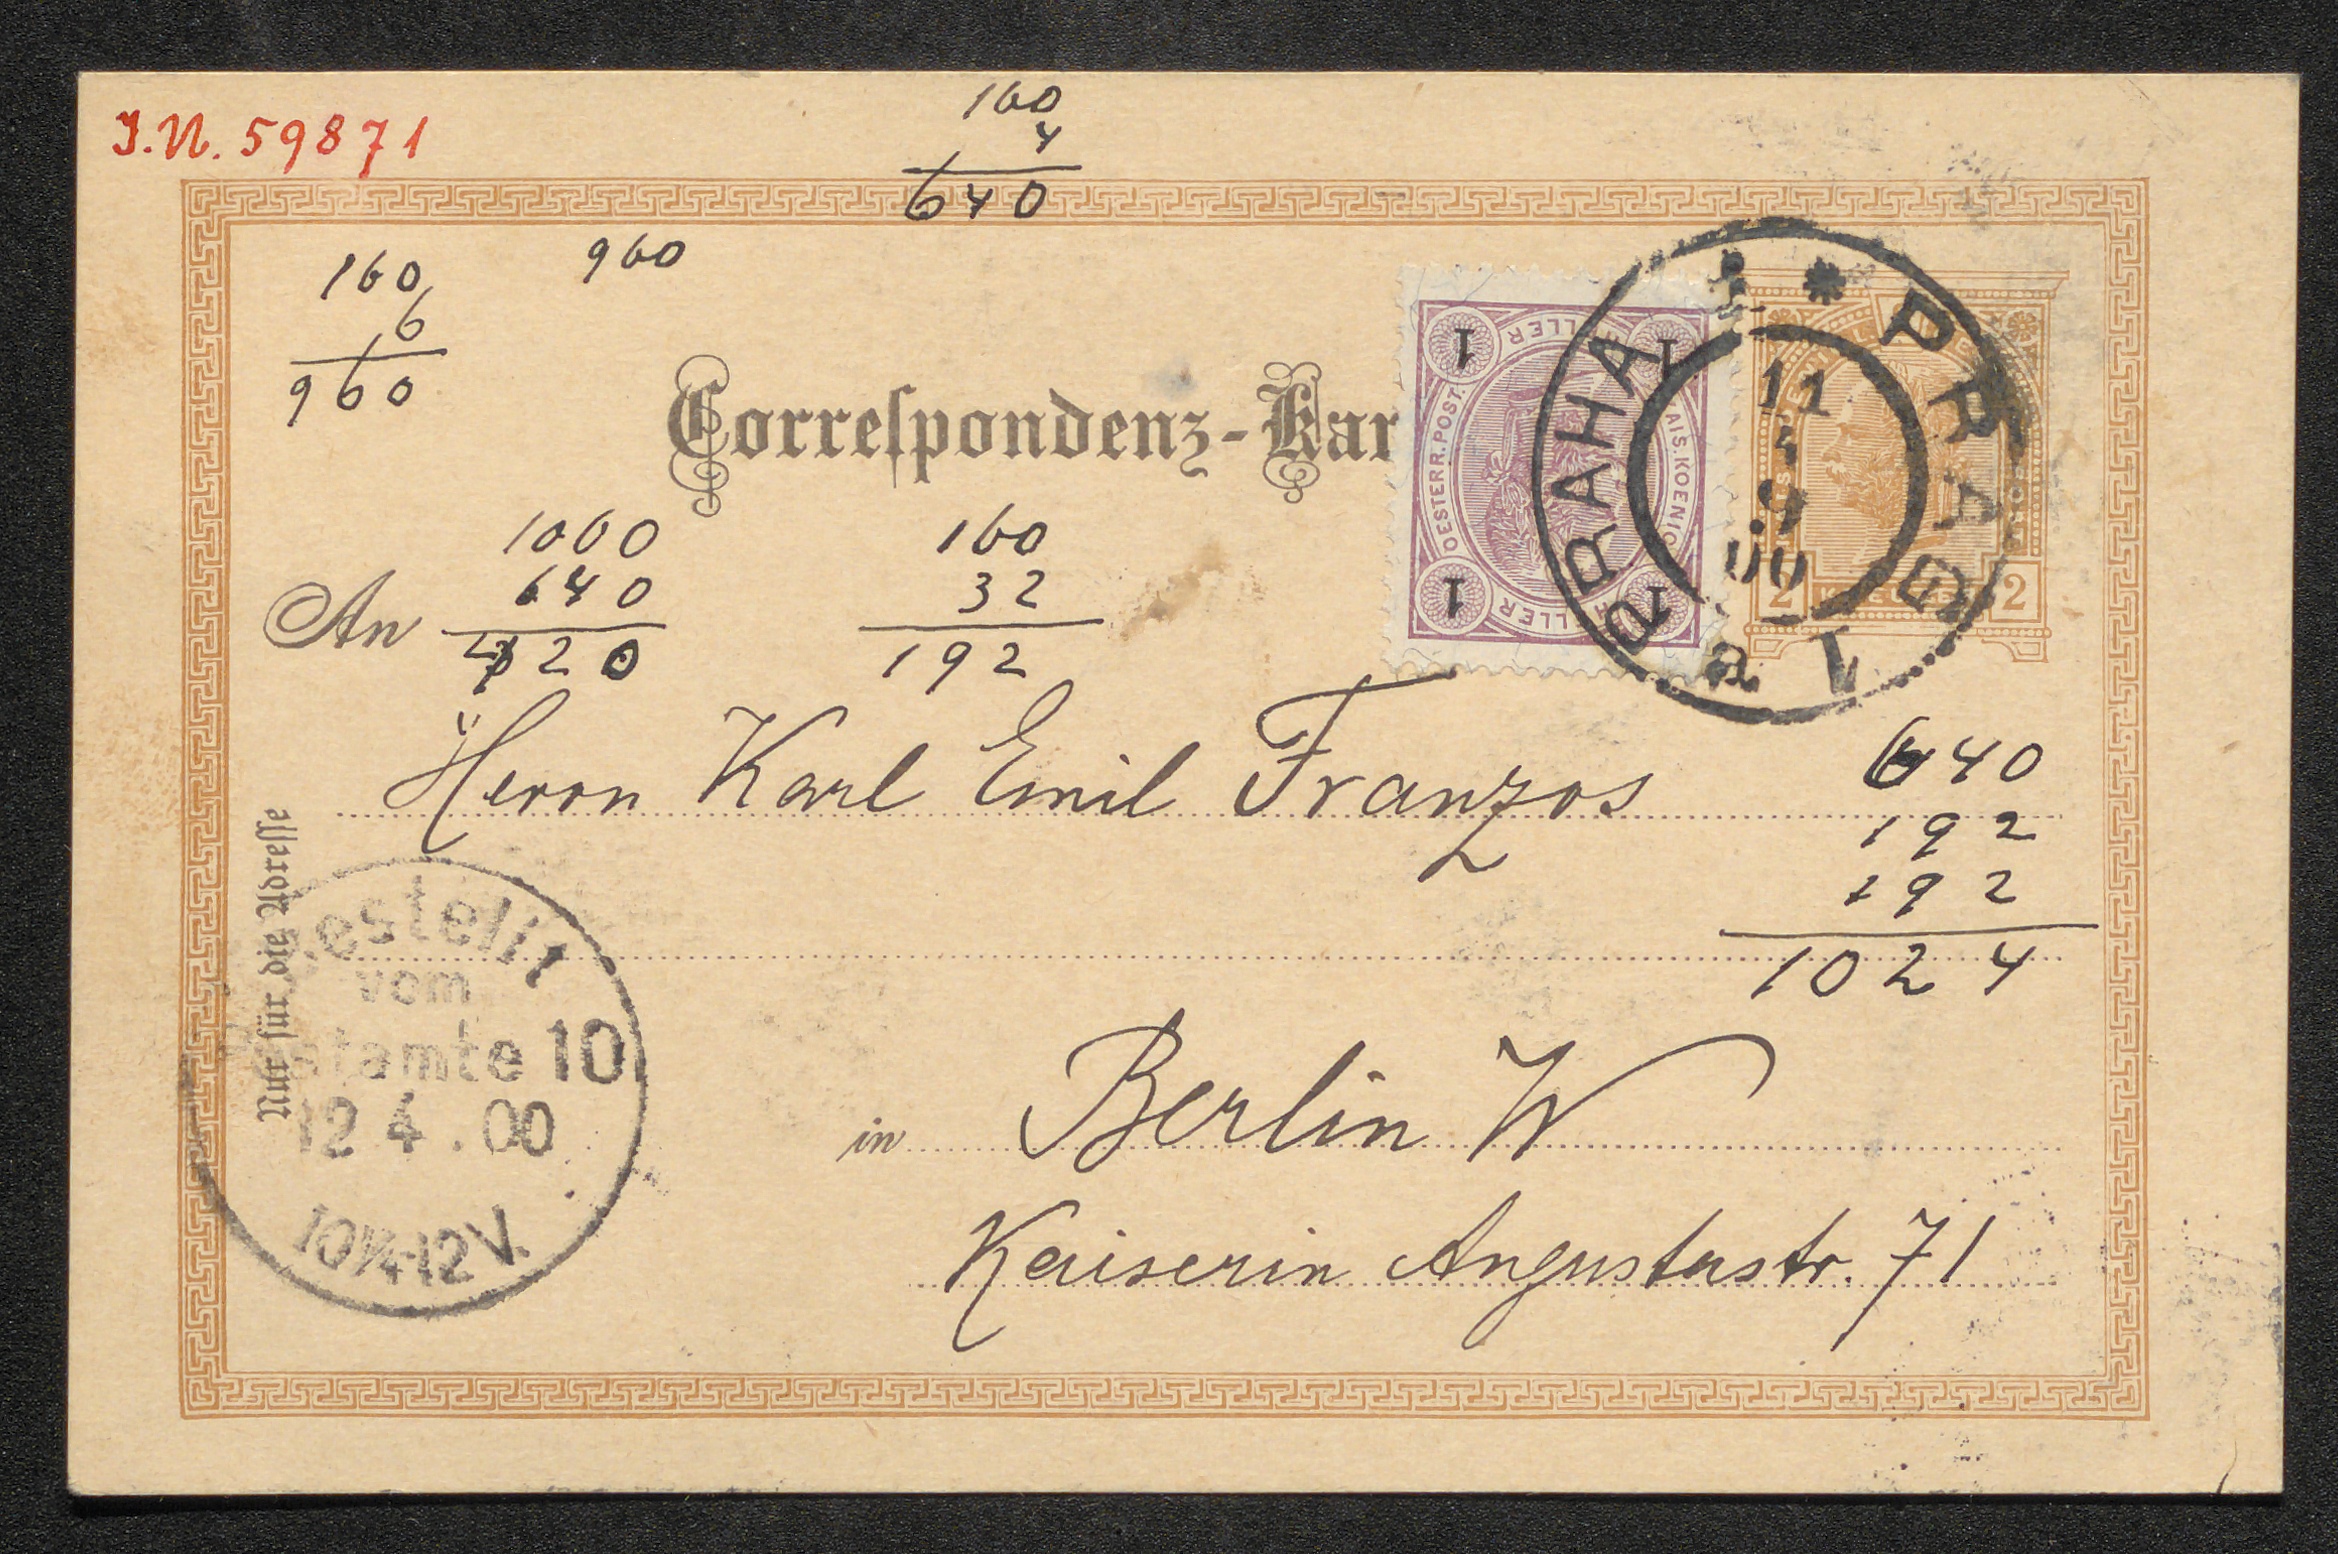 J.N. 59871
160
4
640
160
6
960
960
Correspondenz-Kar
1
1
1
1
HELLER
OESTERR. POST.
KAIS. KOENIG.
HELLER
2
2
PRAG 1
PRAHA 1
11
4
9
00
1060
640
20
160
32
192
An
Herrn Karl Emil Franzos
640
192
192
1024
Nur für die Adresse
Bestellt
vom
Postamte 10
12 4. 00
10¼-12V.
in Berlin W
Kaiserin Augustastr. 71